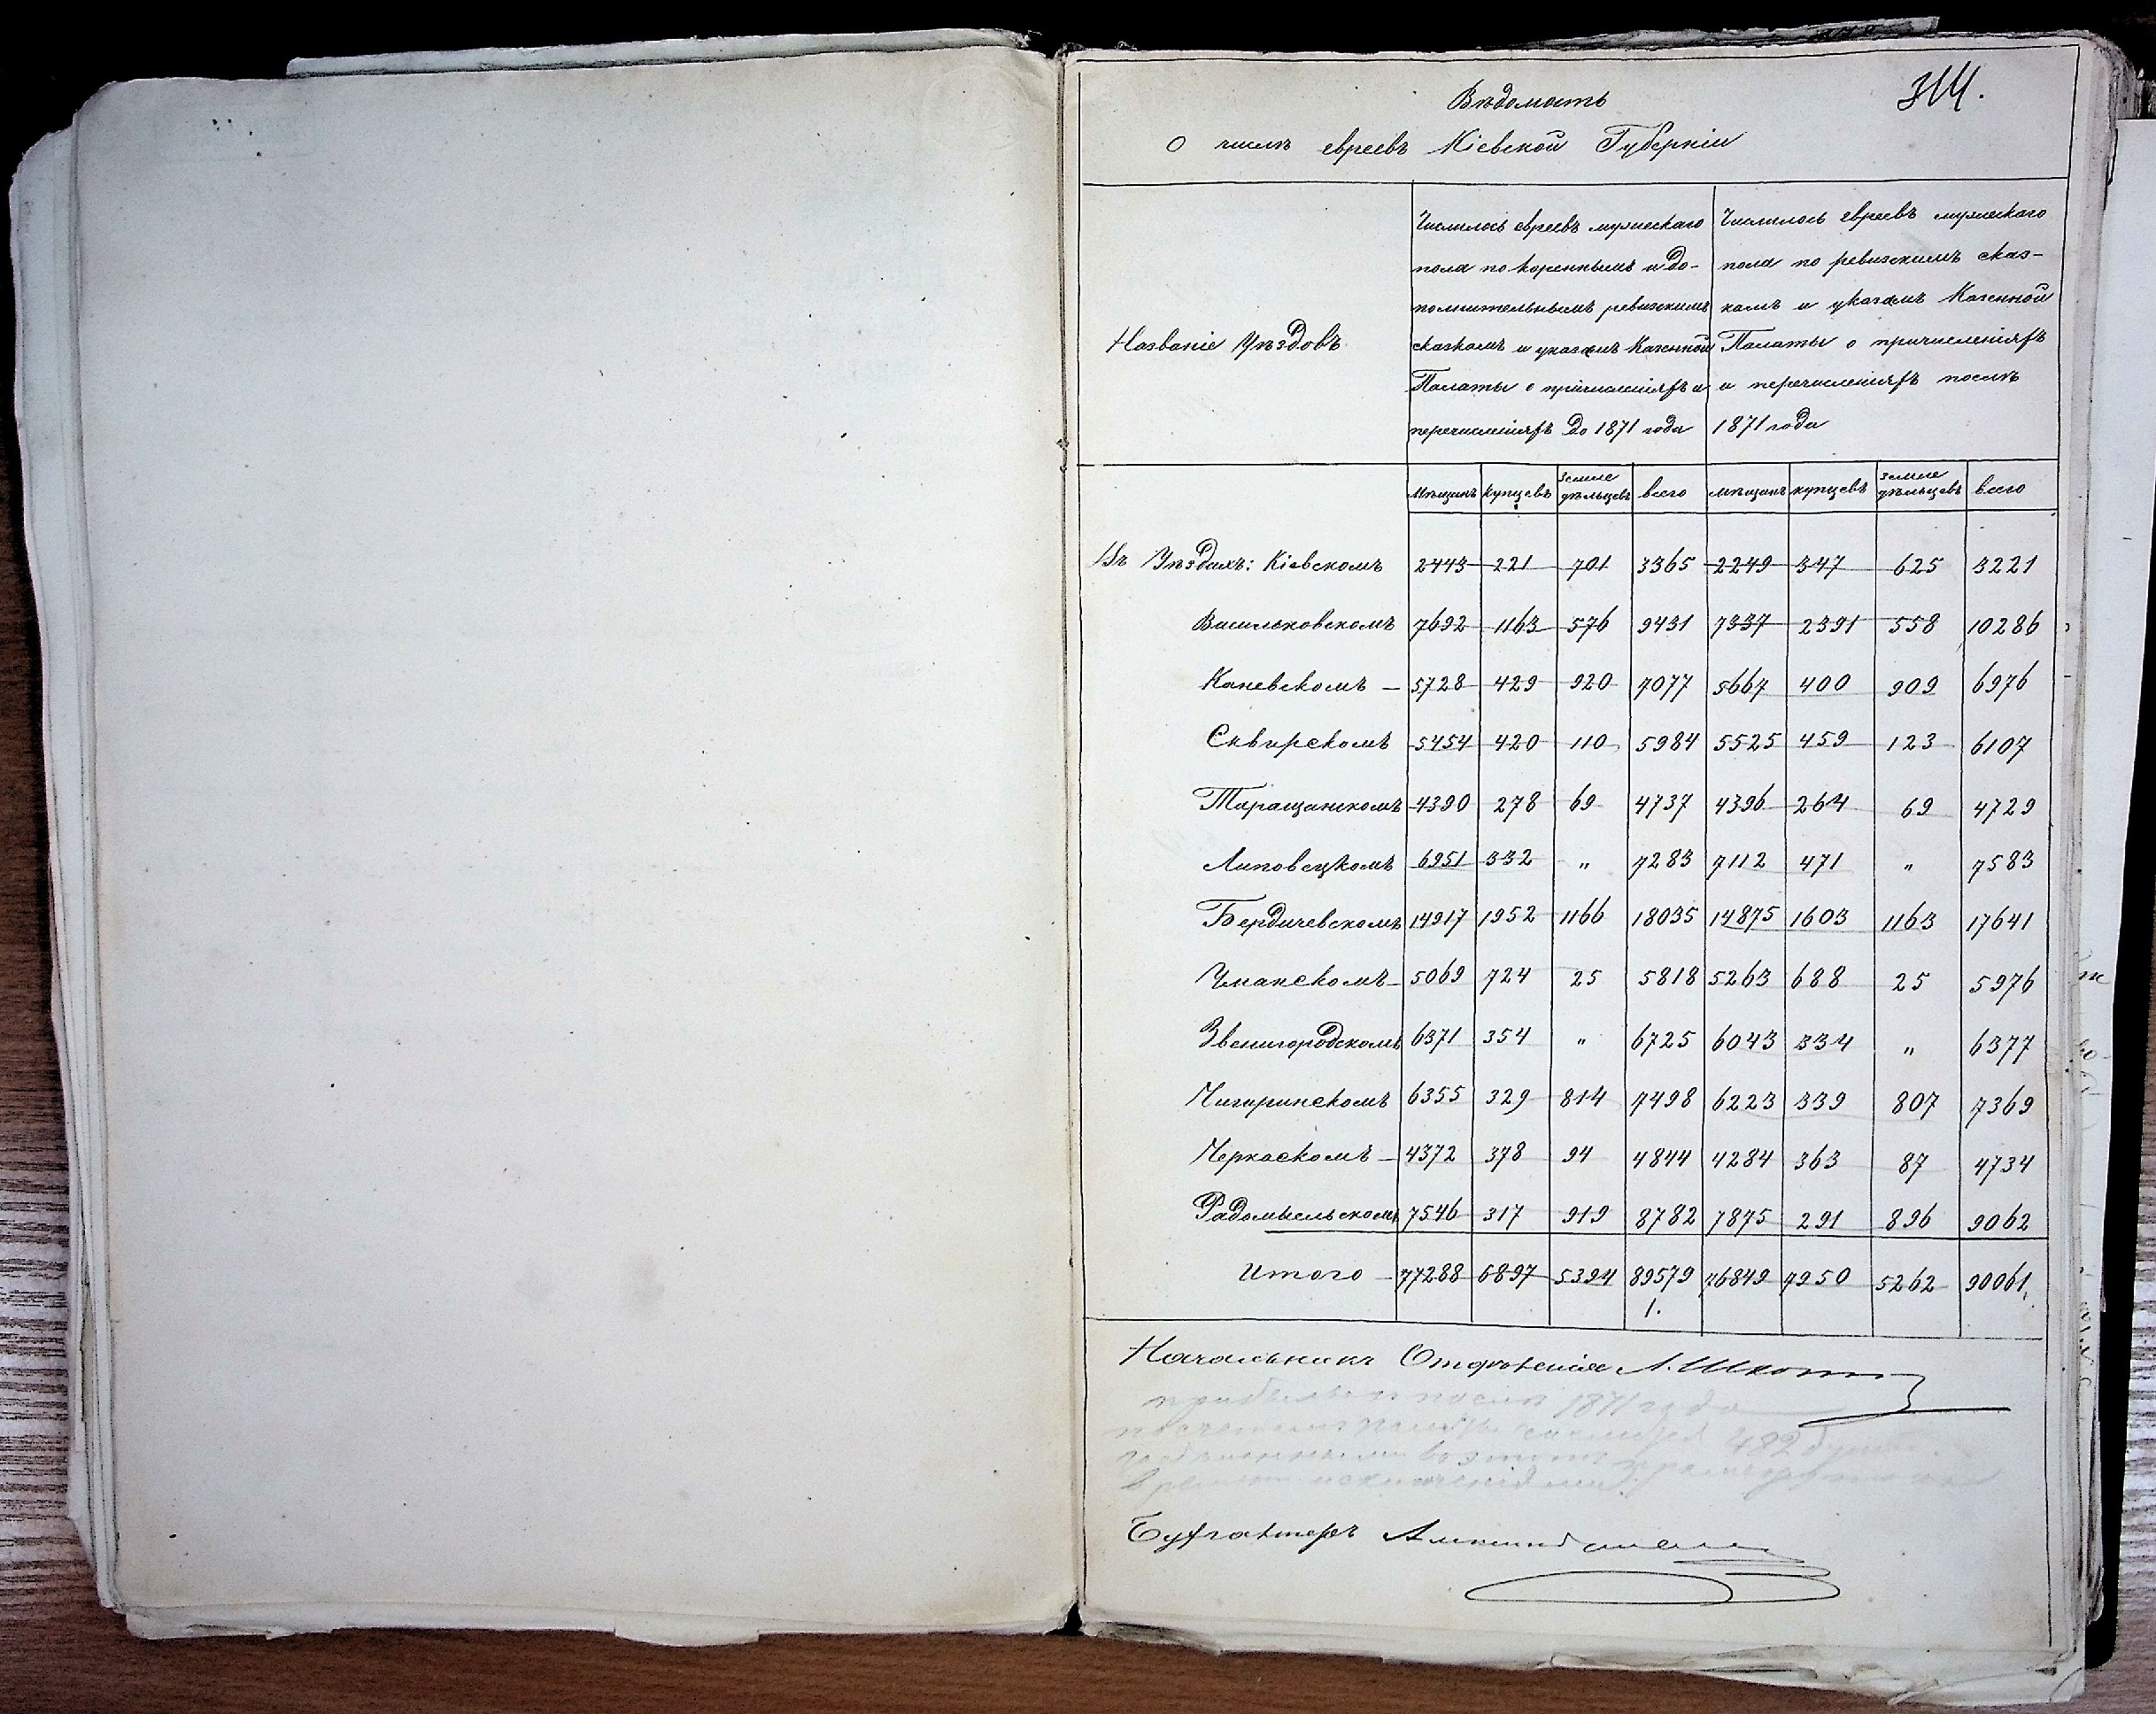 314.
Вѣдомость
о числѣ евреевъ Кіевской Губерніи
Названіе Уѣздовъ
Числилось евреевъ мужескаго
пола по кореннымъ и до-
полнительнымъ ревизскимъ
сказкамъ и указамъ Казенной
Палаты о причисленіяхъ и
перечисленіяхъ до 1871 года
Числилось евреевъ мужескаго
пола по ревизскимъ сказ-
камъ и указамъ Казенной
Палаты о причисленіяхъ
и перечисленіяхъ послѣ
1871 года
мѣщанъ купцевъ земле дѣльцевъ всего мѣщанъ купцевъ земле дѣльцевъ всего
Въ Уѣздахъ: Кіевскомъ 2443 221 701 3365 2249 347 625 3221
Васильковскомъ 7692 1163 576 9431 7337 2391 558 10286
Каневскомъ — 5728 429 920 7077 5667 400 909 6976
Сквирскомъ 5454 420 110 5984 5525 459 123 6107
Таращанскомъ 4390 278 69 4737 4396 264 69 4729
Липовецкомъ 6951 332 „ 7283 7112 471 „ 7583
Бердичевскомъ 14917 1952 1166 18035 14875 1603 1163 17641
Уманскомъ — 5069 724 25 5818 5263 688 25 5976
Звенигородскомъ 6371 354 „ 6725 6043 334 „ 6377
Чигиринскомъ 6355 329 814 7498 6223 339 807 7369
Черкаскомъ — 4372 378 94 4844 4284 363 87 4734
Радомысльскомъ 7546 317 919 8782 7875 291 896 9062
Итого — 77288 6897 5394 89579 76849 7950 5262 90061
1.
Начальникъ Отдѣленія
послѣ 1871 года
482
Бухгалтеръ